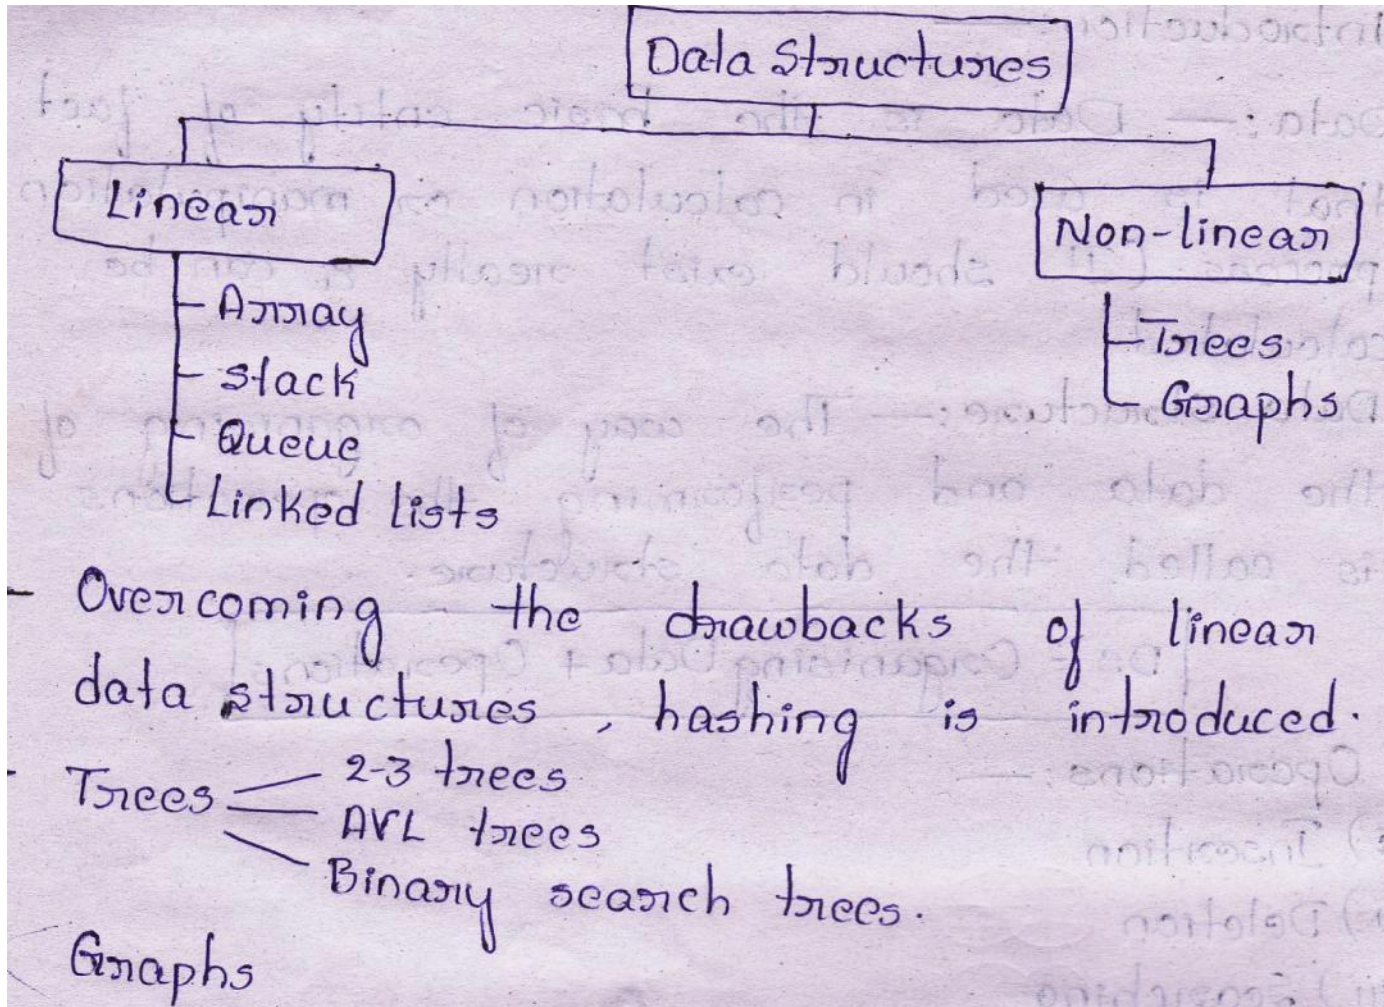 Data Structures
Linear
Non-linear
Array
Stack
Queue
Linked lists
Trees
Graphs
- Overcoming the drawbacks of linear
data structures, hashing is introduced.
- Trees 2-3 trees
AVL trees
Binary search trees.
Graphs